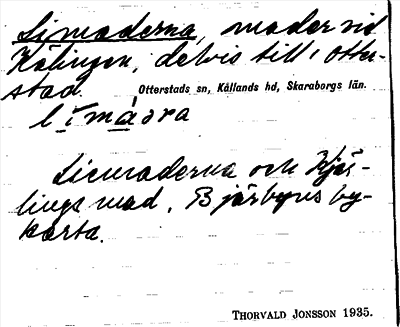 Limaderna, mader vid
Kålingen, delvis till Otter-
stad. Otterstads sn, Kållands hd, Skaraborgs län.
līmāərа
Limaderna och Kjär-
lings mad. Bjärbyns by-
karta.
THORVALD JONSSON 1935.